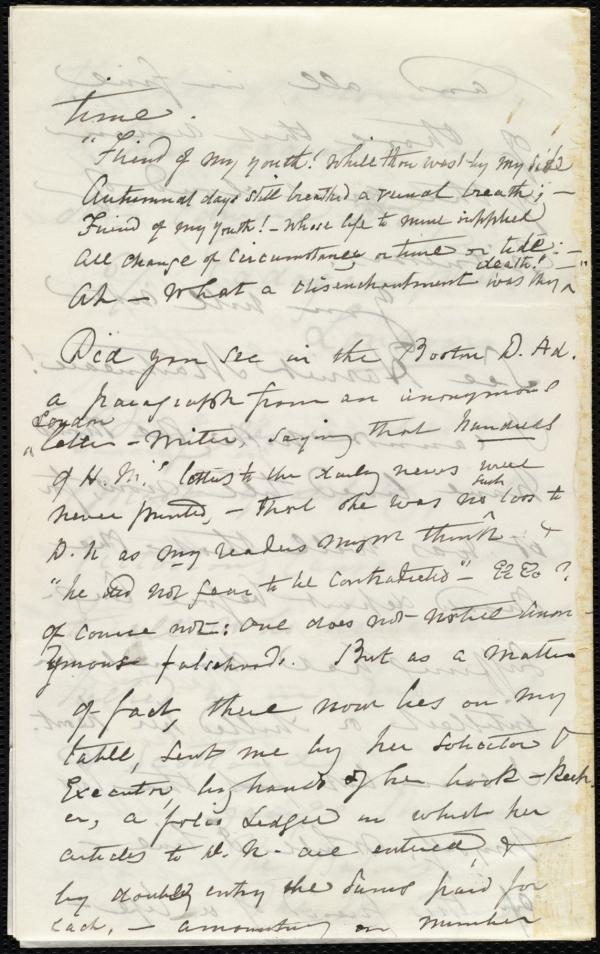 time.
"Friend of my youth! while thou wast by my side
Autumnal days still breathed a vernal breath; —
Friend of my youth! — whose life to mine supplied
All change of circumstance or time or tide: —
Ah — What a disenchantment was thy death! —"
Did you see in the Boston D. Ad.
a paragraph from an anonymous
London
"letter-writer, saying that hundreds
of H. M.'s letters to the daily news were
never printed, — that she was no such loss to
D. N as my readers might think &
"he did not fear to be contradicted" — &c &c?
of course not: one does not notice anon-
ymous falsehoods. But as a matter
of fact, there now lies on my
table, sent me by her solicitor &
Executor, by hands of her book-keep-
er, a folio Ledger in which her
articles to D. N. are entered, &
by double entry the sums paid for
each, — amounting in number